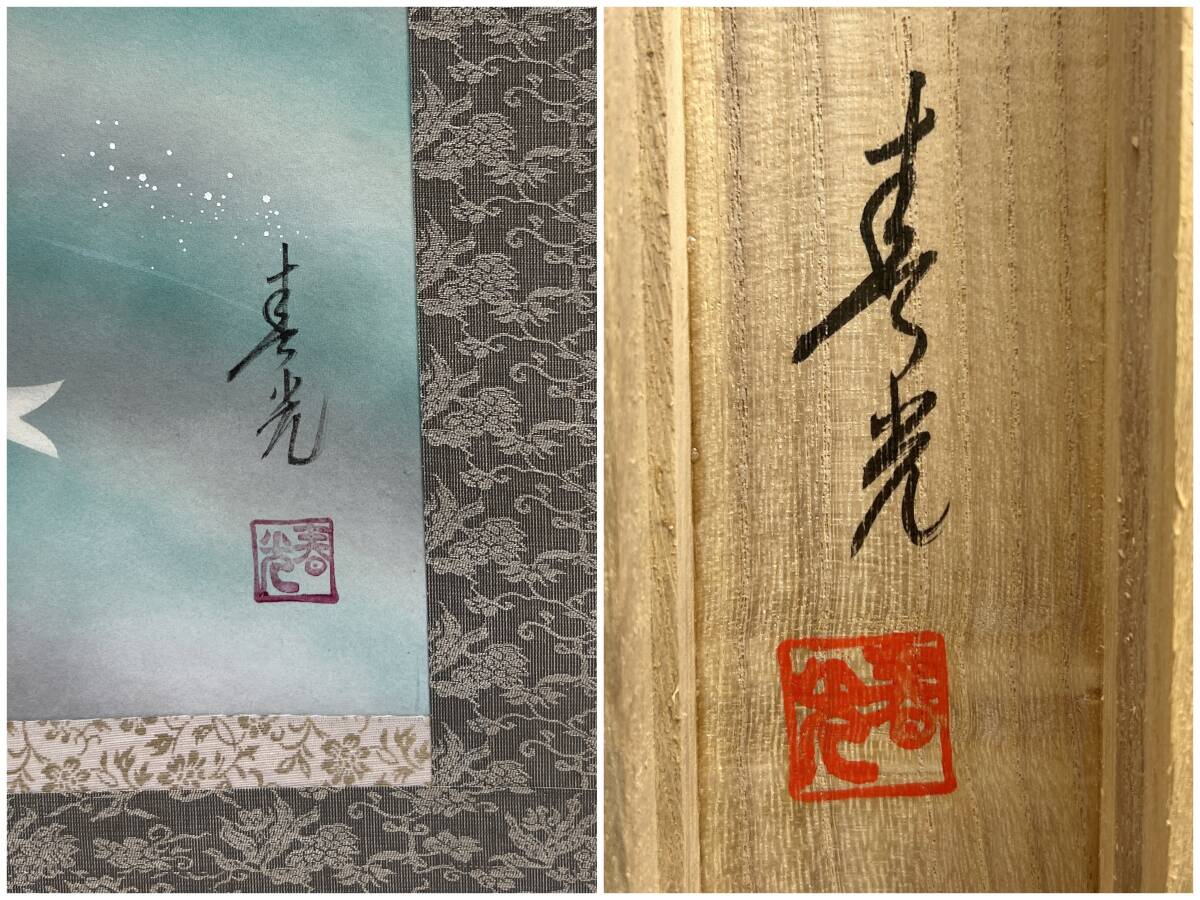 春光
春光
春光
春光